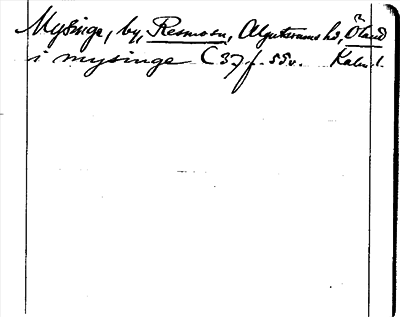 Mysinge, by, Resmo sn, Algutsrums hd, Öland
i mysinge C 37 f. 55v. Kalm. l.